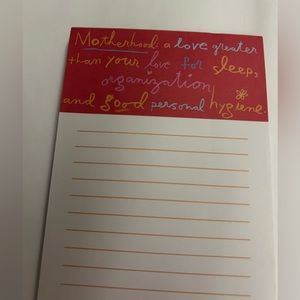 Motherhood: a love greater
than your love for sleep,
organization,
and good personal hygiene.